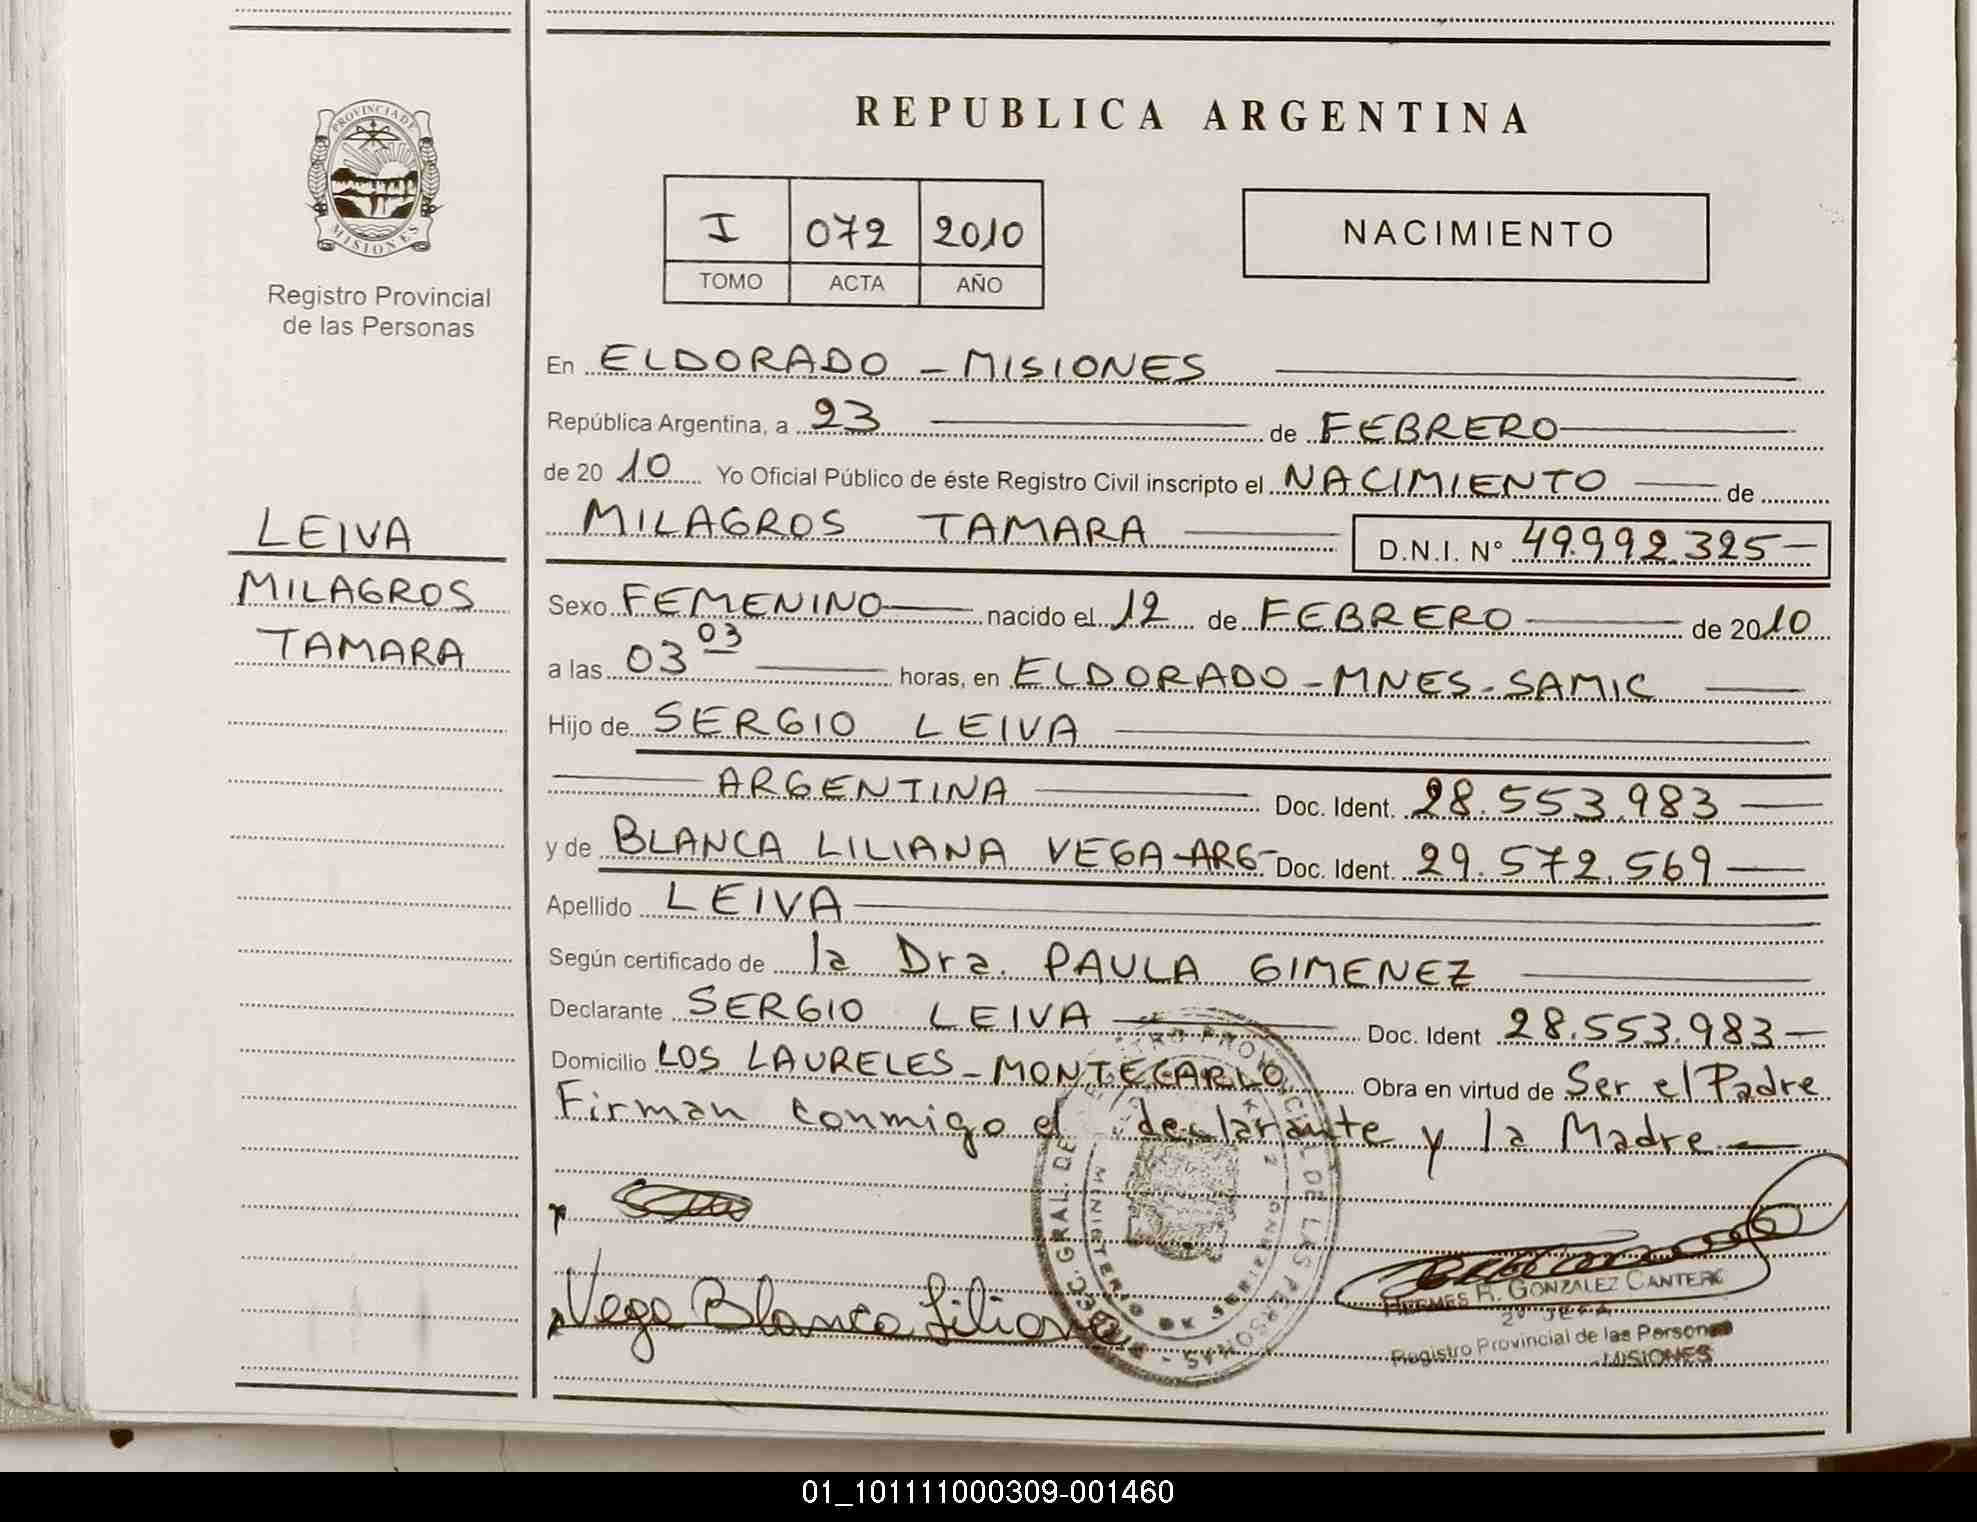 PROVINCIA DE
MISIONES
Registro Provincial
de las Personas
LEIVA
MILAGROS
TAMARA
REPUBLICA ARGENTINA
I 072 2010
TOMO ACTA AÑO
NACIMIENTO
En ELDORADO - MISIONES
República Argentina, a 23 de FEBRERO
de 20 10 Yo Oficial Público de éste Registro Civil inscripto el NACIMIENTO de
MILAGROS TAMARA D.N.I. N° 49.992.325-
Sexo FEMENINO nacido el 12 de FEBRERO de 2010
a las 03 03 horas, en ELDORADO - MNES - SAMIC
Hijo de SERGIO LEIVA
ARGENTINA Doc. Ident. 28.553.983
y de BLANCA LILIANA VEGA-ARG- Doc. Ident. 29.572.569
Apellido LEIVA
Según certificado de la Dra. PAULA GIMENEZ
Declarante SERGIO LEIVA Doc. Ident 28.553.983
Domicilio LOS LAURELES - MONTECARLO Obra en virtud de Ser el Padre
Firman conmigo el declarante y la Madre
Vega Blanca Liliana
HERMES R. GONZALEZ CANTERO
2º JEFA
Registro Provincial de las Personas
- MISIONES
01_101111000309-001460